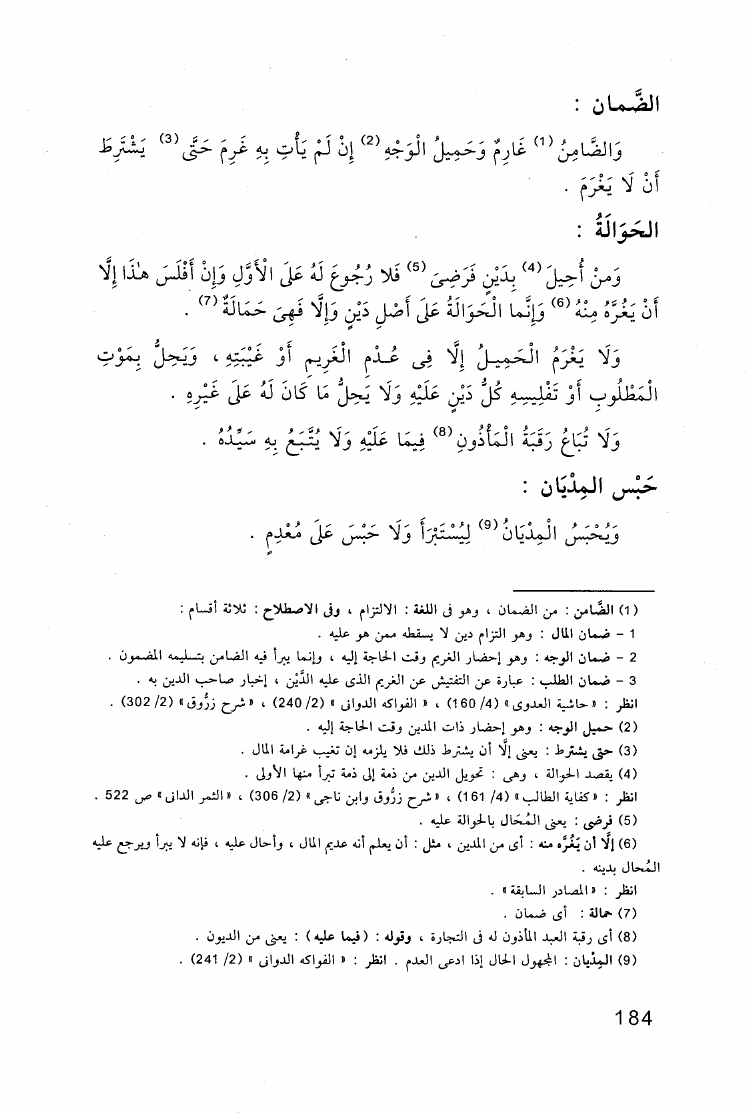 الضَّمان :
وَالضَّامِنُ (1) غَارِمٌ وَحَمِيلُ الْوَجْهِ (2) إِنْ لَمْ يَأْتِ بِهِ غَرِمَ حَتَّى (3) يَشْتَرِطَ
أَنْ لَا يَغْرَمَ .
الحَوَالَةُ :
وَمَنْ أُحِيلَ (4) بِدَيْنٍ فَرَضِىَ (5) فَلا رُجُوعَ لَهُ عَلَى الْأَوَّلِ وَإِنْ أَفْلَسَ هٰذَا إِلَّا
أَنْ يَغُرَّهُ مِنْهُ (6) وَإِنَّمَا الْحَوَالَةُ عَلَى أَصْلِ دَيْنٍ وَإِلَّا فَهِىَ حَمَالَةٌ (7) .
وَلَا يَغْرَمُ الْحَمِيلُ إِلَّا فِى عُدْمِ الْغَرِيمِ أَوْ غَيْبَتِهِ ، وَيَحِلُّ بِمَوْتِ
الْمَطْلُوبِ أَوْ تَفْلِيسِهِ كُلُّ دَيْنٍ عَلَيْهِ وَلَا يَحِلُّ مَا كَانَ لَهُ عَلَى غَيْرِهِ .
وَلَا تُبَاعُ رَقَبَةُ الْمَأْذُونِ (8) فِيمَا عَلَيْهِ وَلَا يُتَّبَعُ بِهِ سَيِّدُهُ .
حَبْس المِدْيَان :
وَيُحْبَسُ الْمِدْيَانُ (9) لِيُسْتَبْرَأَ وَلَا حَبْسَ عَلَى مُعْدِمٍ .
(1) الضَّامن : من الضمان ، وهو فى اللغة : الالتزام ، وفى الاصطلاح : ثلاثة أقسام :
1 - ضمان المال : وهو التزام دين لا يسقطه ممن هو عليه .
2 - ضمان الوجه : وهو إحضار الغريم وقت الحاجة إليه ، وإنما يبرأ فيه الضامن بتسليمه المضمون .
3 - ضمان الطلب : عبارة عن التفتيش عن الغريم الذى عليه الدَّيْن ، إخبار صاحب الدين به .
انظر : « حاشية العدوى » (4/ 160) ، « الفواكه الدوانى » (2/ 240) ، « شرح زرُّوق » (2/ 302) .
(2) حميل الوجه : وهو إحضار ذات المدين وقت الحاجة إليه .
(3) حتى يشترط : يعنى إلَّا أن يشترط ذلك فلا يلزمه إن تغيب غرامة المال .
(4) يقصد الحوالة ، وهى : تحويل الدين من ذمة إلى ذمة تبرأ منها الأولى .
انظر : « كفاية الطالب » (4/ 161) ، « شرح زرُّوق وابن ناجى » (2/ 306) ، « الثمر الدانى » ص 522 .
(5) فرضى : يعنى المُحَال بالحوالة عليه .
(6) إلَّا أن يَغُرَّه منه : أى من المدين ، مثل : أن يعلم أنه عديم المال ، وأحال عليه ، فإنه لا يبرأ ويرجع عليه
المُحال بدينه .
انظر : « المصادر السابقة » .
(7) حمالة : أى ضمان .
(8) أى رقبة العبد المأذون له فى التجارة ، وقوله : (فيما عليه) : يعنى من الديون .
(9) المِدْيان : المجهول الحال إذا ادعى العدم . انظر : « الفواكه الدوانى » (2/ 241) .
184